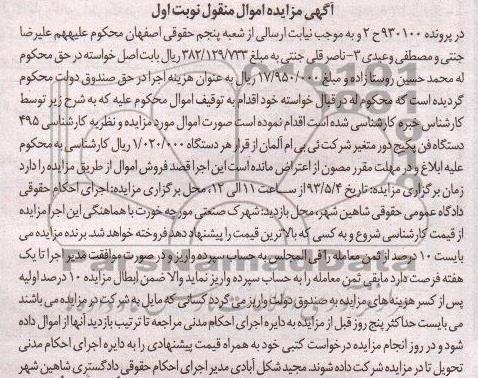 آگهی مزایده اموال منقول نوبت اول
در پرونده ۹۳۰۱۰۰ح ۲ و به موجب نیابت ارسالی از شعبه پنجم حقوقی اصفهان محکوم علیههم علیرضا
جنتی و مصطفی وعیدی ۳- ناصر قلی جنتی به مبلغ ۳۸۲/۱۲۹/۷۳۳ ریال بابت اصل خواسته در حق محکوم
له محمد حسین روستازاده و مبلغ ۱۷/۹۵۰/۰۰۰ ریال به عنوان هزینه اجرا در حق صندوق دولت محکوم
گردیده است که محکوم له در قبال خواسته خود اقدام به توقیف اموال محکوم علیه که به شرح زیر توسط
کارشناس خبره کارشناسی شده است اقدام نموده است صورت اموال مورد مزایده و نظریه کارشناسی ۴۹۵
دستگاه فن پکیج دور متغیر شرکت ئی بی ام آلمان از قرار هر دستگاه ۱/۰۲۰/۰۰۰ ریال کارشناسی به محکوم
علیه ابلاغ و در مهلت مقرر مصون از اعتراض مانده است این اجرا قصد فروش اموال از طریق مزایده را دارد
زمان برگزاری مزایده: تاریخ ۹۳/۵/۴ از ساعت ۱۱ الی ۱۲، محل برگزاری مزایده: اجرای احکام حقوقی
دادگاه عمومی حقوقی شاهین شهر، محل بازدید: شهرک صنعتی مورچه خورت با هماهنگی این اجرا مزایده
از قیمت کارشناسی شروع و به کسی که بالاترین قیمت را پیشنهاد دهد فروخته خواهد شد. برنده مزایده می
بایست ۱۰ درصد از ثمن معامله را فی المجلس به حساب سپرده واریز و در صورت موافقت مدیر اجرا تا یک
هفته فرصت دارد مابقی ثمن معامله را به حساب سپرده واریز نماید والا ضمن ابطال مزایده ۱۰ درصد اولیه
پس از کسر هزینه های مزایده به صندوق دولت واریز می گردد کسانی که مایل به شرکت در مزایده می باشند
می بایست حداکثر پنج روز قبل از مزایده به دایره اجرای احکام مدنی مراجعه تا ترتیب بازدید آنها از اموال داده
شود و در روز انجام مزایده درخواست کتبی خود به همراه قیمت پیشنهادی را به دایره اجرای احکام مدنی
تحویل تا در مزایده شرکت داده شوند. مجید شکل آبادی مدیر اجرای احکام حقوقی دادگستری شاهین شهر
ParsNamadData